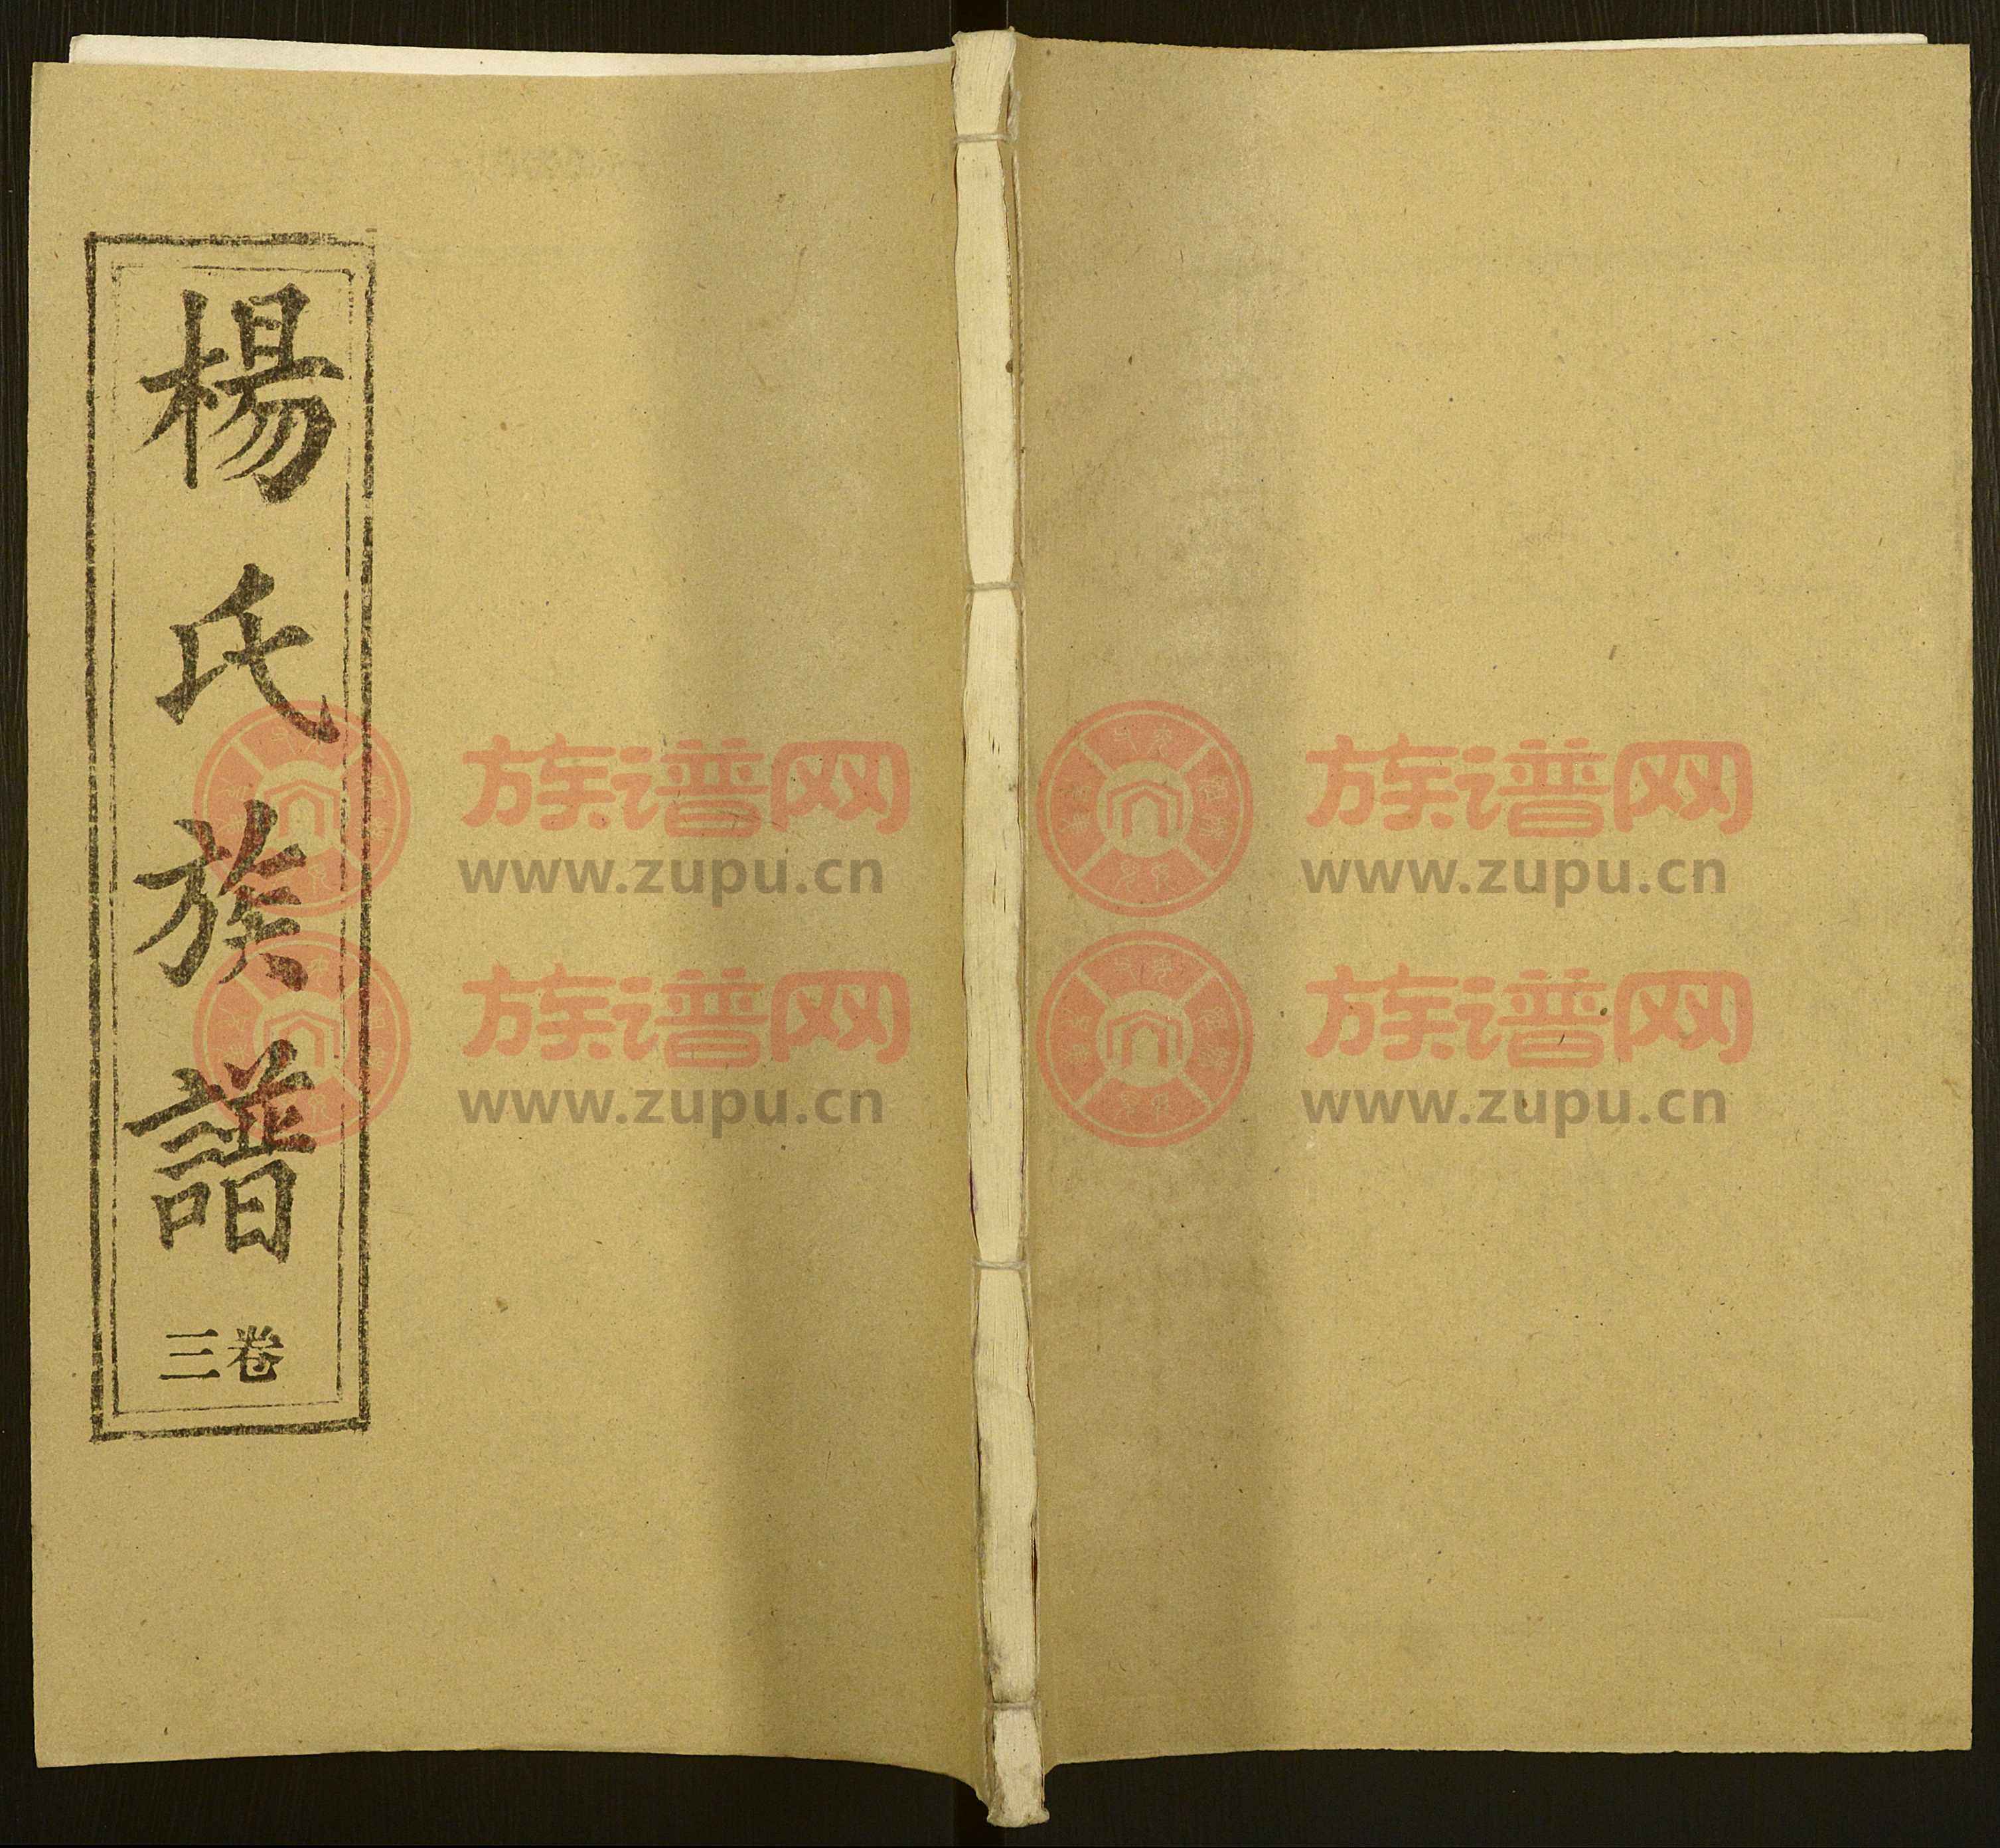 楊氏族譜
卷三
族谱网
www.zupu.cn
族谱网
www.zupu.cn
族谱网
www.zupu.cn
族谱网
www.zupu.cn